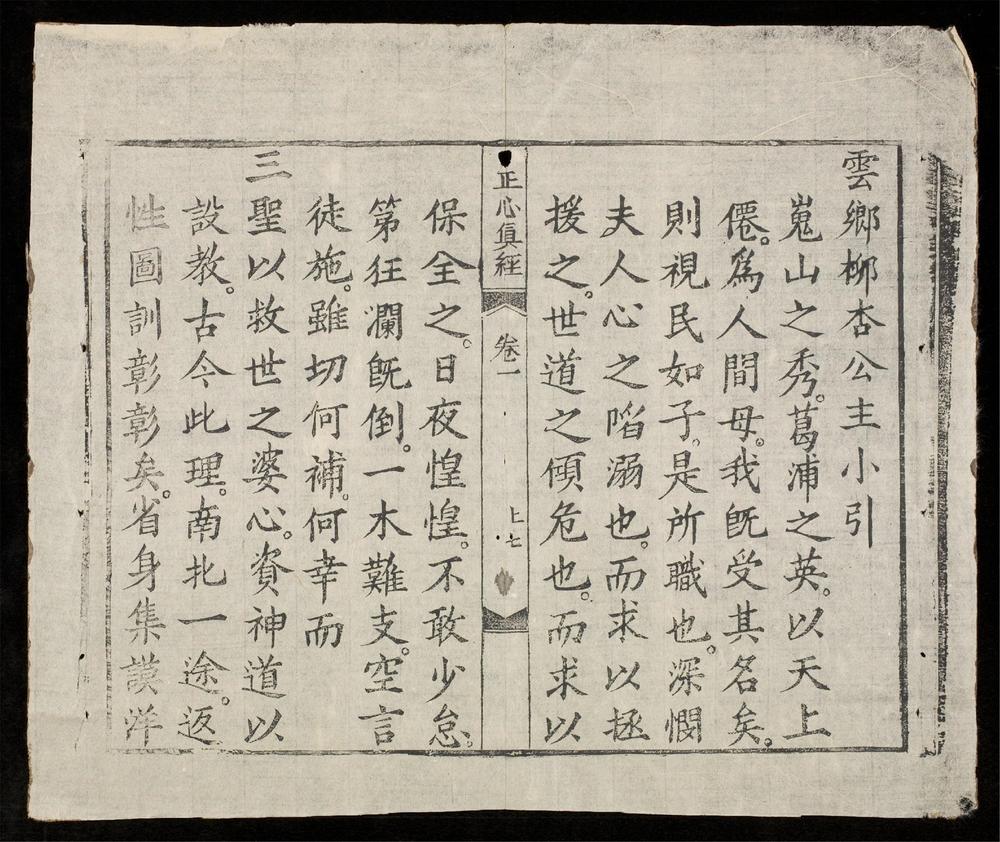 雲鄉柳杏公主小引
嵬山之秀。葛浦之英。以天上
僊。爲人間母。我旣受其名矣。
則視民如子。是所職也。深憫
夫人心之陷溺也。而求以拯
援之。世道之傾危也。而求以
正心眞經
卷一
上七
保全之。日夜惶惶。不敢少怠。
第狂瀾旣倒。一木難支。空言
徒施。雖切何補。何幸而
三聖以救世之婆心。資神道以
設教。古今此理。南北一途。返
性圖訓彰彰矣。省身集謨洋